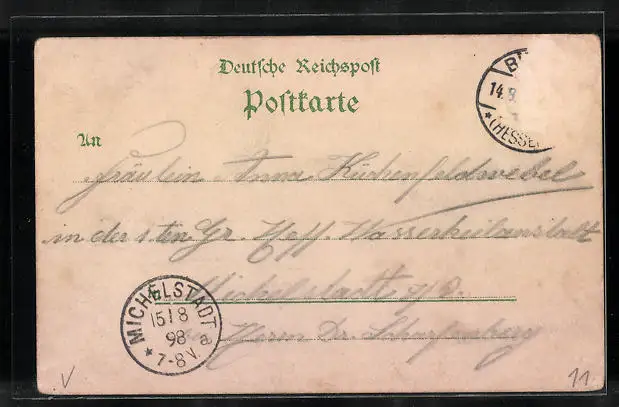 Deutsche Reichspost
Postkarte
B
14.8
*(HESSE
An
Fräulein Anna Küchenfeldwebel
in der 1sten Gr. Heff. Wasserheilanstalt
Michelstadt i/O.
Herrn Dr. Scharfenberg
MICHELSTADT
15 8
98
* 7-8V. a
V
11